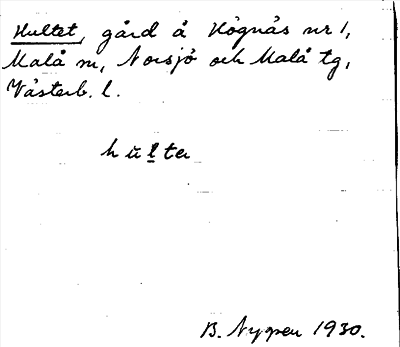 Hultet, gård å Högnäs nr 1,
Malå sn, Norsjö och Malå tg,
Västerb. l.
hu̇l̲ta
B. Nygren 1930.